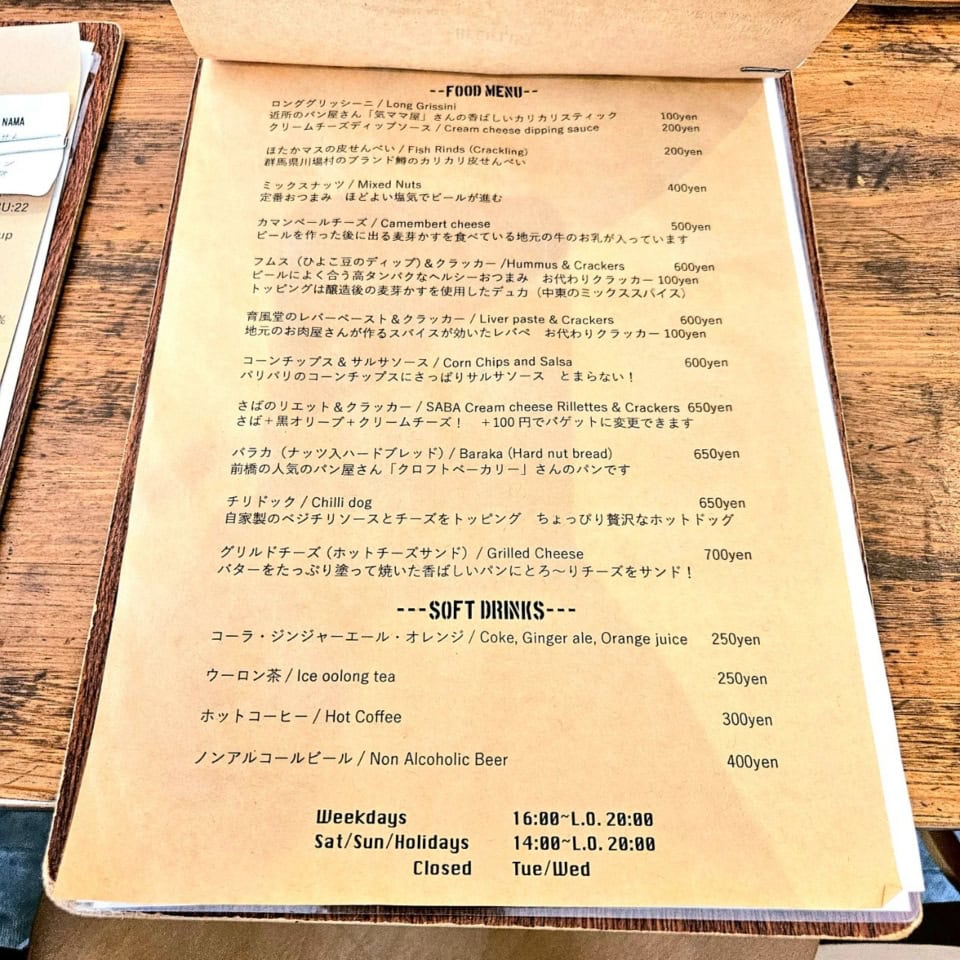 NAMA
U:22
up
%
--FOOD MENU--
ロンググリッシーニ / Long Grissini
近所のパン屋さん「気ママ屋」さんの香ばしいカリカリスティック 100yen
クリームチーズディップソース / Cream cheese dipping sauce 200yen
ほたかマスの皮せんべい / Fish Rinds (Crackling) 200yen
群馬県川場村のブランド鱒のカリカリ皮せんべい
ミックスナッツ / Mixed Nuts 400yen
定番おつまみ ほどよい塩気でビールが進む
カマンベールチーズ / Camembert cheese 500yen
ビールを作った後に出る麦芽かすを食べている地元の牛のお乳が入っています
フムス（ひよこ豆のディップ）＆クラッカー /Hummus & Crackers 600yen
ビールによく合う高タンパクなヘルシーおつまみ お代わりクラッカー 100yen
トッピングは醸造後の麦芽かすを使用したデュカ（中東のミックススパイス）
育風堂のレバーペースト＆クラッカー / Liver paste & Crackers 600yen
地元のお肉屋さんが作るスパイスが効いたレバペ お代わりクラッカー 100yen
コーンチップス & サルサソース / Corn Chips and Salsa 600yen
パリパリのコーンチップスにさっぱりサルサソース とまらない！
さばのリエット＆クラッカー / SABA Cream cheese Rillettes & Crackers 650yen
さば＋黒オリーブ＋クリームチーズ！ ＋100 円でバゲットに変更できます
バラカ（ナッツ入ハードブレッド）/ Baraka (Hard nut bread) 650yen
前橋の人気のパン屋さん「クロフトベーカリー」さんのパンです
チリドック / Chilli dog 650yen
自家製のベジチリソースとチーズをトッピング ちょっぴり贅沢なホットドッグ
グリルドチーズ（ホットチーズサンド）/ Grilled Cheese 700yen
バターをたっぷり塗って焼いた香ばしいパンにとろ〜りチーズをサンド！
---SOFT DRINKS---
コーラ・ジンジャーエール・オレンジ / Coke, Ginger ale, Orange juice 250yen
ウーロン茶 / Ice oolong tea 250yen
ホットコーヒー / Hot Coffee 300yen
ノンアルコールビール / Non Alcoholic Beer 400yen
Weekdays 16:00~L.O. 20:00
Sat/Sun/Holidays 14:00~L.O. 20:00
Closed Tue/Wed